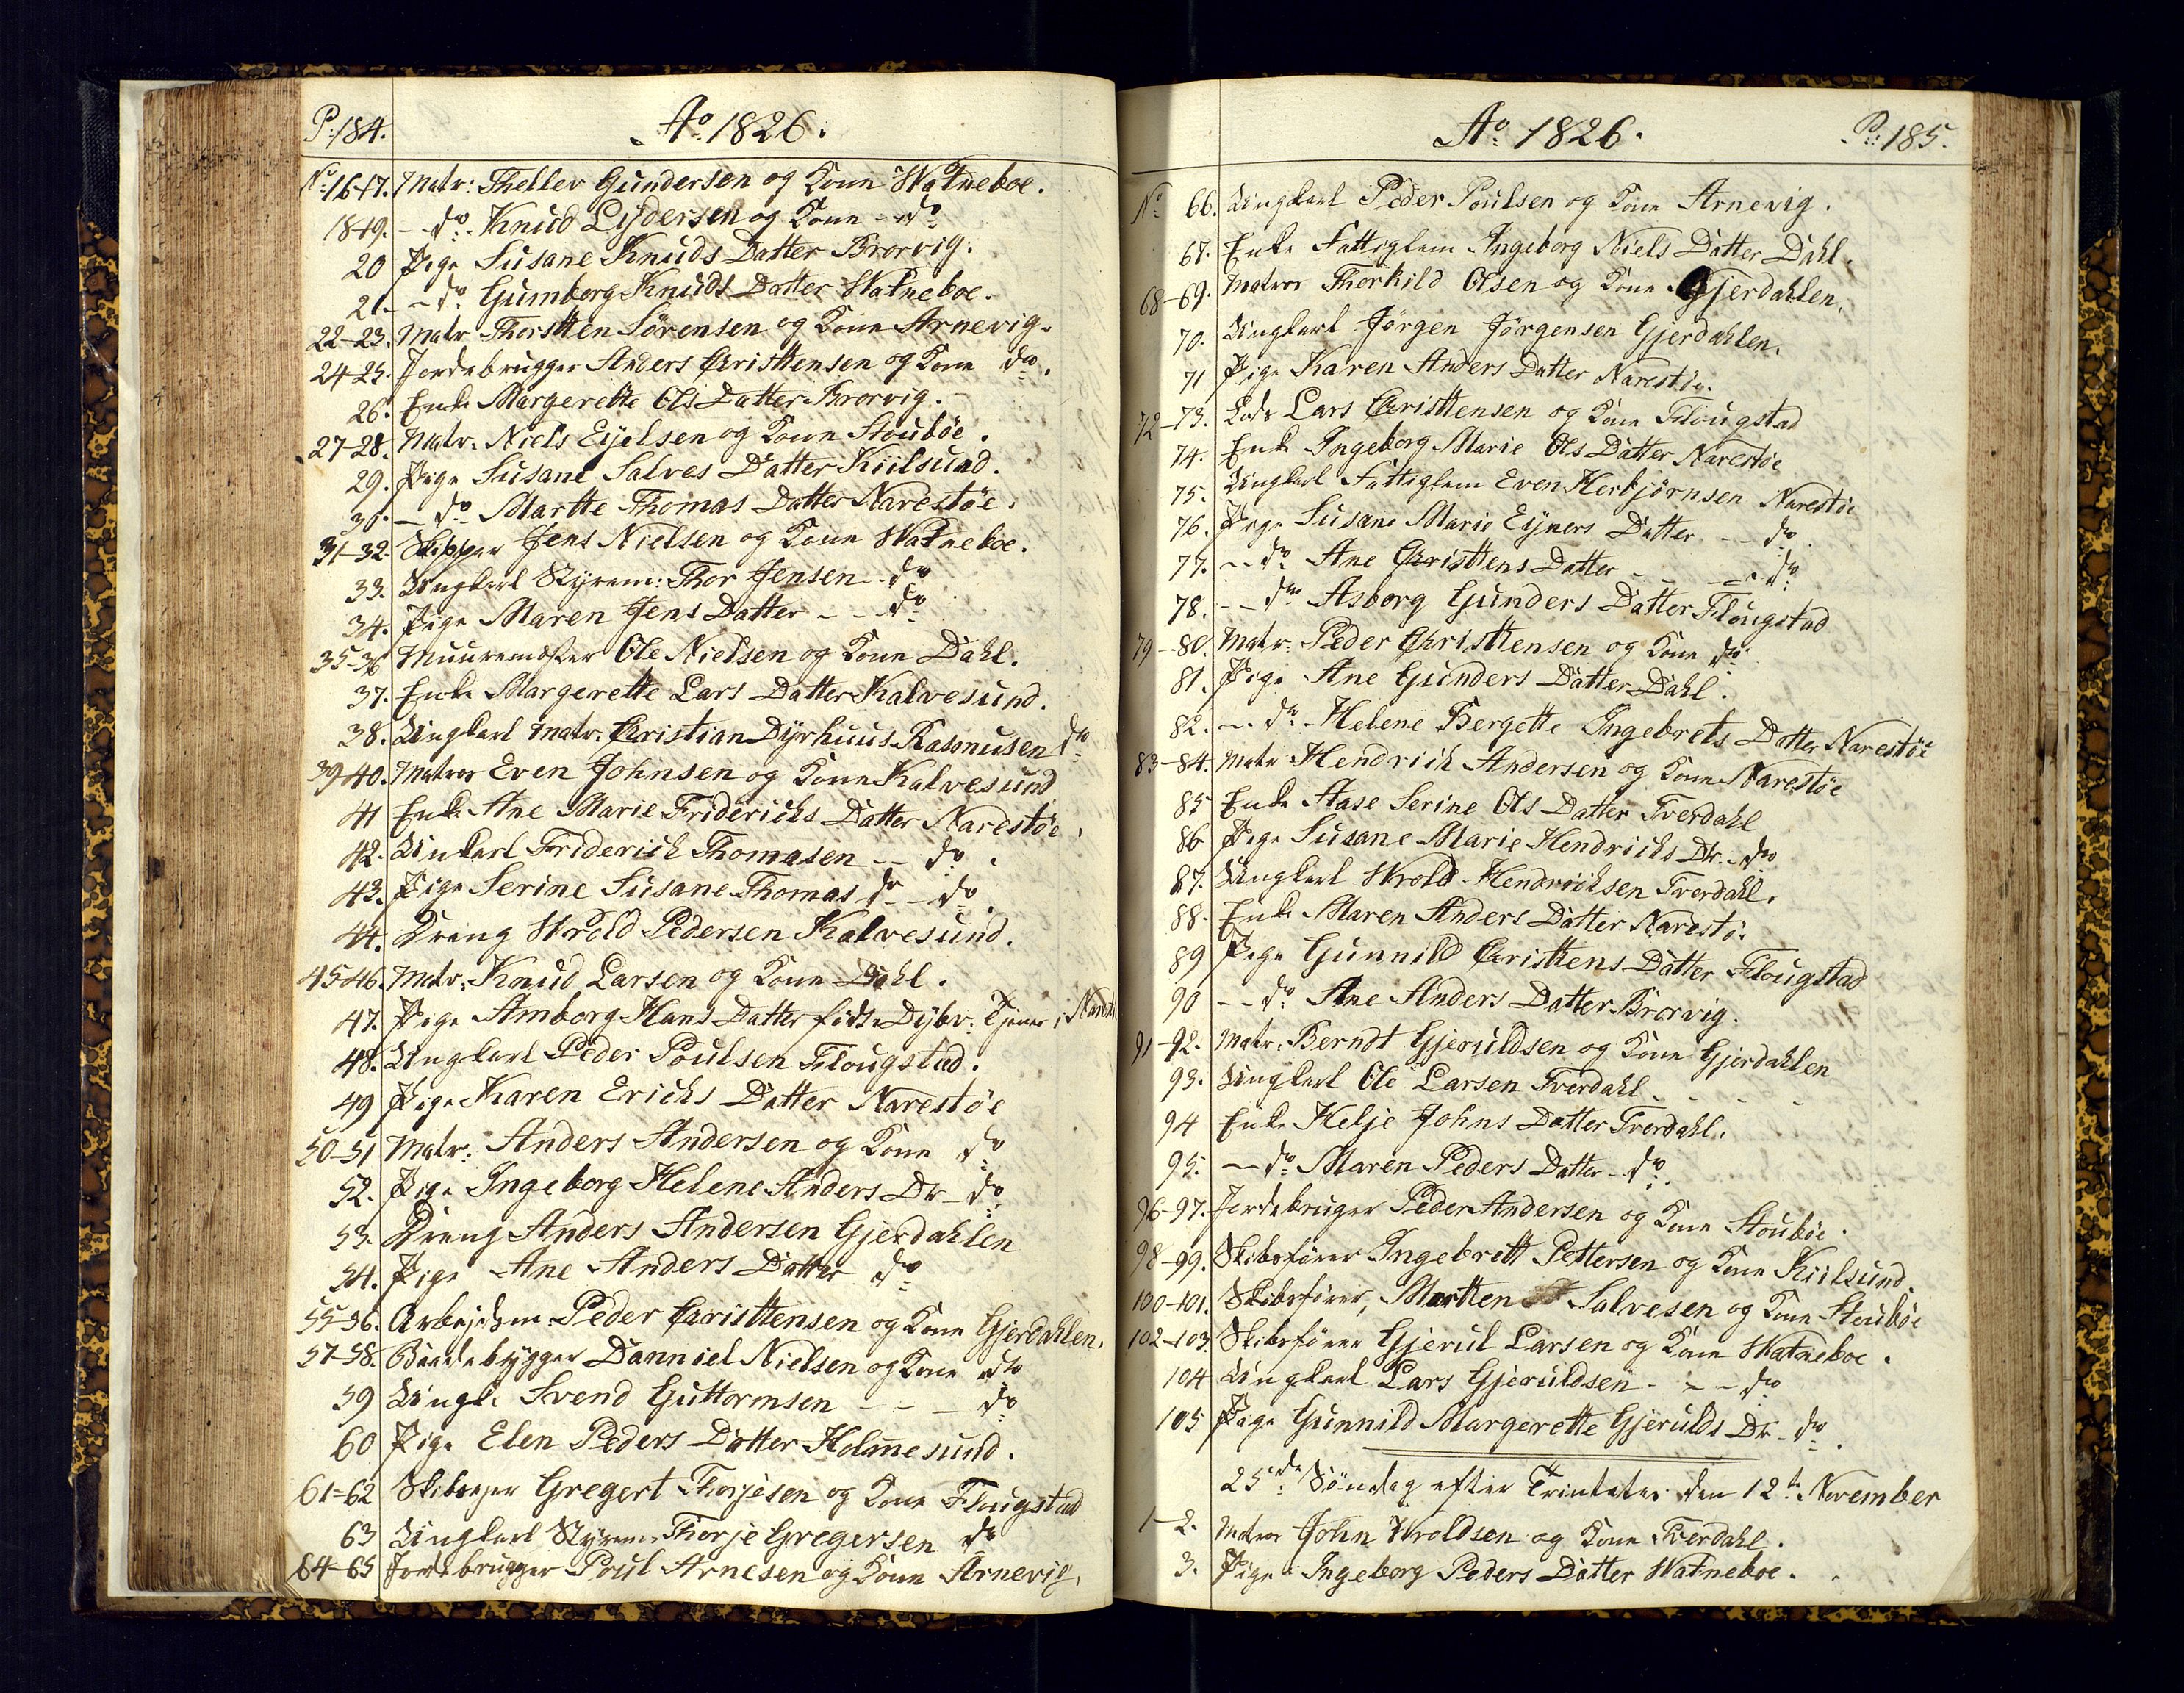 P: 184.
Ao 1826.
No 16-17. Matr: Theller Gundersen og Kone Watneboe.
18-19. - do Knud Lydersen og Kone - do
20 Pige Susane Knuds Datter Brorvig.
21. - do Gumborg Knuds Datter Watneboe.
22-23. Matr Thorstten Sörensen og Kone Arnevig.
24-25. Jordebrugger Anders Christtensen og Kone do.
26. Enke Margerette Ols Datter Brorvig.
27-28. Matr: Niels Eyelsen og Kone Stouböe.
29. Pige Susane Salves Datter Kiilsund.
30. - do Martte Thomas Datter Narestöe.
31-32. Skipper Jens Nielsen og Kone Watneboe.
33. Ungkarl Styrem: Thor Jensen - do
34. Pige Maren Jens Datter - - do
35-36 Muuremester Ole Nielsen og Kone Dahl.
37. Enke Margerette Lars Datter Kalvesund.
38. Ungkarl Matr: Christian Dyrhuus Rasmusen do
39-40. Matros Even Johnsen og Kone Kalvesund
41 Enke Ane Marie Friderichs Datter Narestöe.
42. Unkarl Friderich Thomasen - - do.
43. Pige Serine Susane Thomas dr - do.
44. Dreng Wrold Pedersen Kalvesund.
45-46. Matr: Knud Larsen og Kone Dahl.
47. Pige Amborg Hans Datter föds Dybv: Tjener i
48. Ungkarl Peder Poulsen Flougstad.
49 Pige Karen Erichs Datter Narestöe
50-51 Matr: Anders Andersen og Kone do
52. Pige Ingeborg Helene Anders Dr - do
53. Dreng Anders Andersen Gjerdahlen
54. Pige Ane Anders Datter do
55-56. Arbejdsm: Peder Christtensen og Kone Gjerdahlen.
57-58. Baadebygger Danniel Nielsen og Kone do
59 Ungk: Svend Guttormsen - - - do
60 Pige Elen Peders Datter Holmesund.
61=62 Skibsejer Gregert Thorjesen og Kone Flougstad
63 Ungkarl Styrem: Thorje Gregersen do
64-65 Jordebrugger Poul Arnesen og Kone Arnevig.
Ao 1826.
P: 185.
No 66. Ungkarl Peder Poulsen og Kone Arnevig.
67. Enke Fattiglem Ingeborg Niels Datter Dahl.
68-69. Matros Thorkild Olsen og Kone Gjerdahlen.
70. Ungkarl Jörgen Jörgensen Gjerdahlen.
71 Pige Karen Anders Datter Narestöe.
72-73. Lods Lars Christtensen og Kone Flougstad
74. Enke Ingeborg Marie Ols Datter Narestöe
75. Ungkarl Fattiglem Even Herbjörnsen Narestöe
76. Pige Susane Marie Eyners Datter - - do
77. - - do Ane Christtens Datter - - - do
78. - - do Asborg Gunders Datter Flougstad
79-80. Matr: Peder Christtensen og Kone do
81. Pige Ane Gunders Datter Dahl.
82. - - do Helene Bergette Ingebrets Datter Narestöe
83-84. Matr Hendrich Andersen og Kone Narestöe
85 Enke Aase Serine Ols Datter Tverdahl
86 Pige Susane Marie Hendrichs Dr - do
87. Ungkarl Wrold Hendrichsen Tverdahl.
88. Enke Maren Anders Datter Narestö:
89 Pige Gunnild Christtens Datter Flougstad
90 - - do Ane Anders Datter Brorvig.
91-92. Matr: Berndt Gjeruldsen og Kone Gjerdahlen
93. Ungkarl Ole Larsen Tverdahl
94 Enke Helje Johns Datter Tverdahl.
95. - do Maren Peders Datter - do.
96-97. Jordebruger Peder Andersen og Kone Stouböe.
98-99. Skibsförer Ingebrett Pettersen og Kone Kiilsund.
100-101. Skibsförer, Martten Salvesen og Kone Stouböe
102-103. Skibsförer Gjerul Larsen og Kone Watneboe.
104 Ungkarl Lars Gjeruldsen - - - do
105 Pige Gunnild Margerette Gjerulds Dr - do.
25de Söndag efter Trinitates den 12te November
1-2. Matros John Wroldsen og Kone Tverdahl.
3. Pige Ingeborg Peders Datter Watneboe.